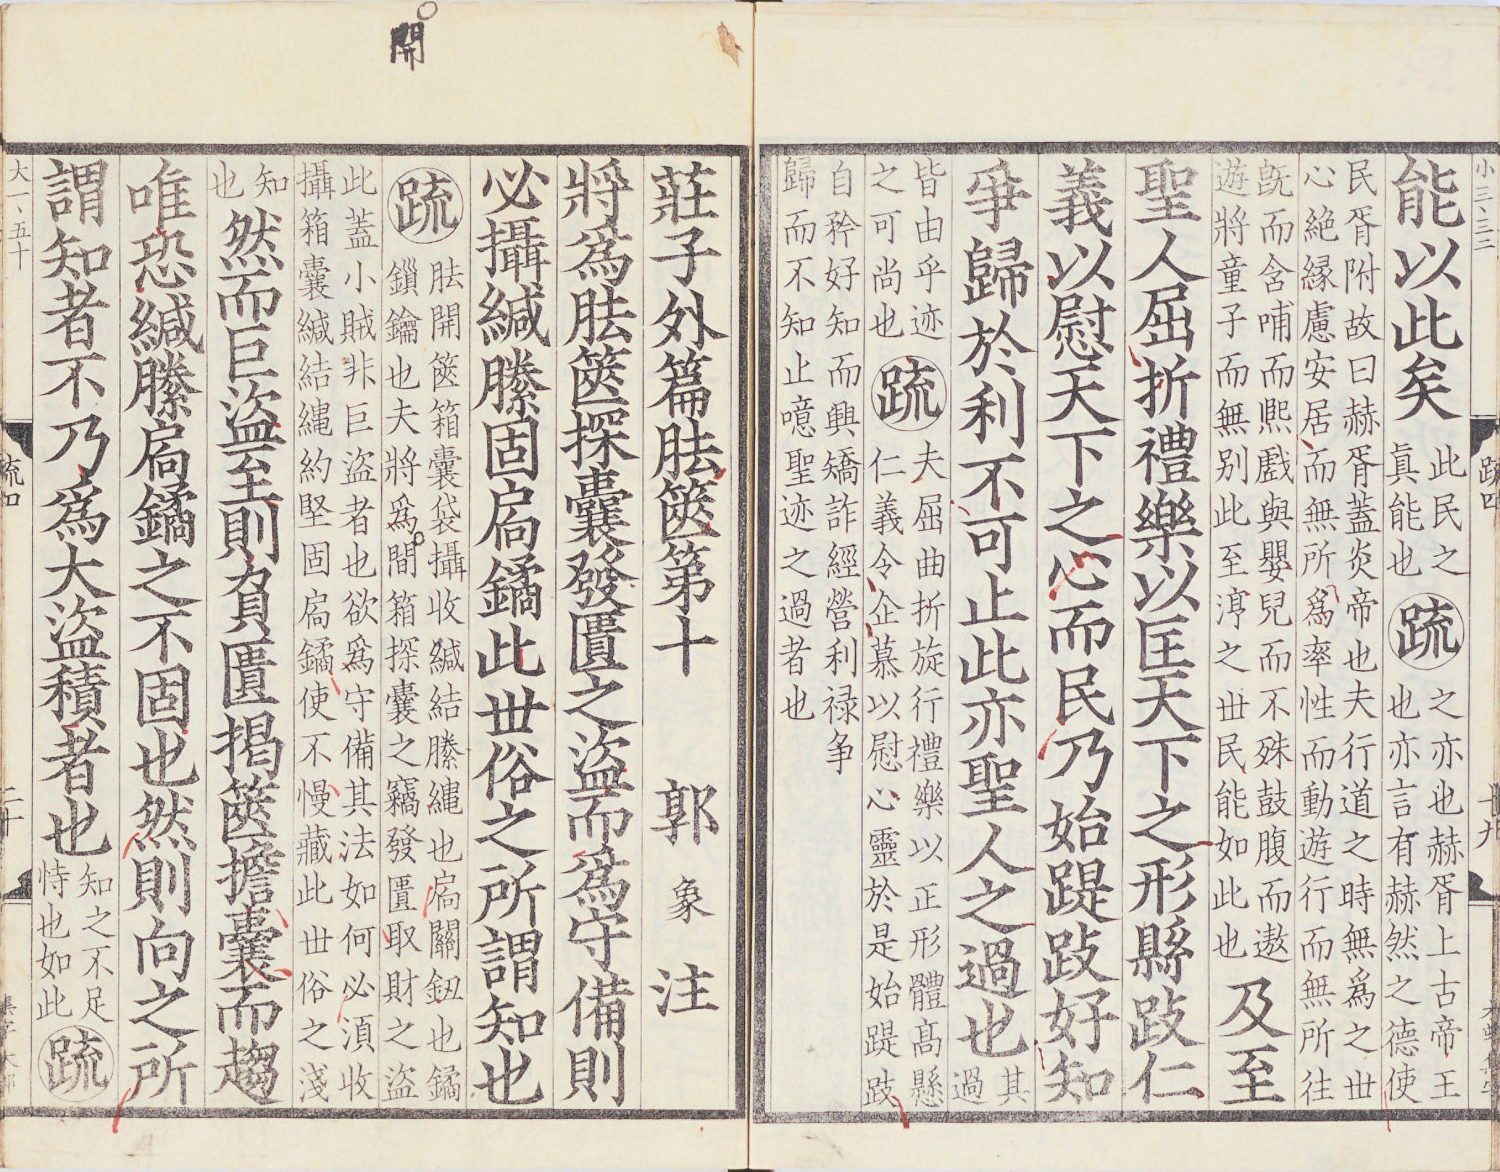 小三、三二
疏四
十九
能以此矣
此民之
真能也
疏
之亦也赫胥上古帝王
也亦言有赫然之德使
民胥附故曰赫胥蓋炎帝也夫行道之時無爲之世
心絶縁慮安居而無所爲率性而動遊行而無所往
旣而含哺而熈戲與嬰兒而不殊鼓腹而遨
遊將童子而無别此至淳之世民能如此也
及至
聖人屈折禮樂以匡天下之形縣跂仁
義以慰天下之心而民乃始踶跂好知
爭歸於利不可止此亦聖人之過也
其
過
皆由乎迹
之可尚也
疏
夫屈曲折旋行禮樂以正形體髙懸
仁義令企慕以慰心靈於是始踶跂
自矜好知而興矯詐經營利禄争
歸而不知止噫聖迹之過者也
莊子外篇胠篋第十 郭象注
將爲胠篋探囊發匱之盗而爲守備則
必攝緘縢固扃鐍此世俗之所謂知也
開
疏
胠開篋箱囊袋攝收緘結縢縄也扃關鈕也鐍
鎻鑰也夫將爲閒箱探囊之竊發匱取財之盗
此蓋小賊非巨盗者也欲爲守備其法如何必湏收
攝箱囊緘結縄約堅固扃鐍使不慢藏此世俗之淺
知
也
然而巨盗至則負匱揭篋擔囊而趨
唯恐緘縢扃鐍之不固也然則向之所
謂知者不乃爲大盗積者也
知之不足
恃也如此
疏
大一、五十
疏四
二十